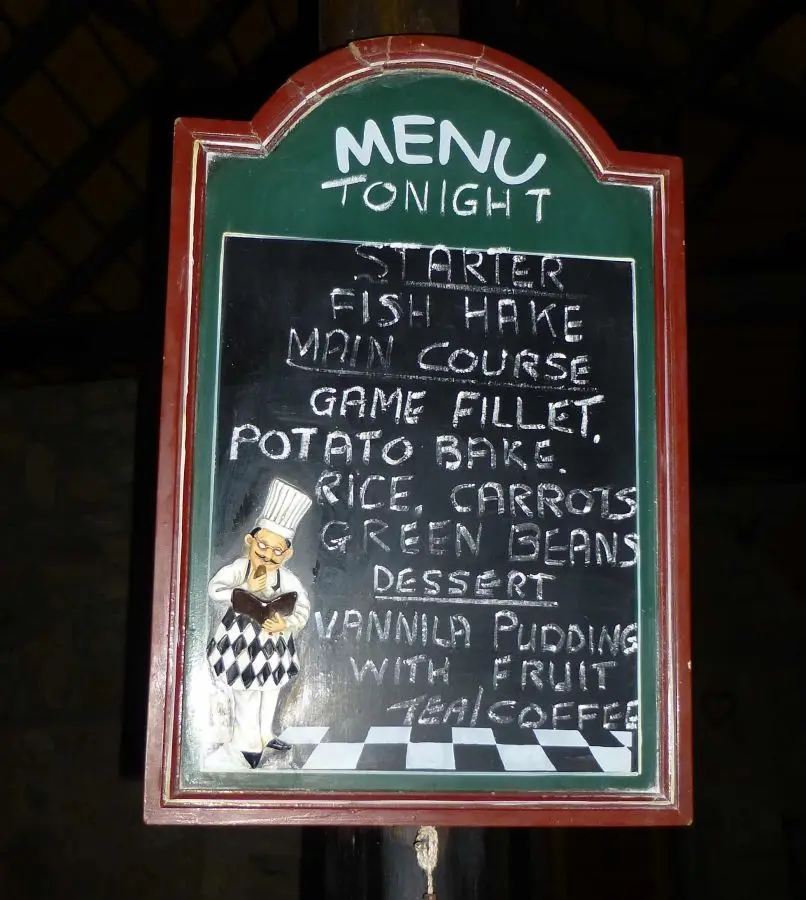 MENU
TONIGHT
STARTER
FISH HAKE
MAIN COURSE
GAME FILLET.
POTATO BAKE.
RICE. CARROTS
GREEN BEANS
DESSERT
VANNILA PUDDING
WITH FRUIT
TEA/COFFEE